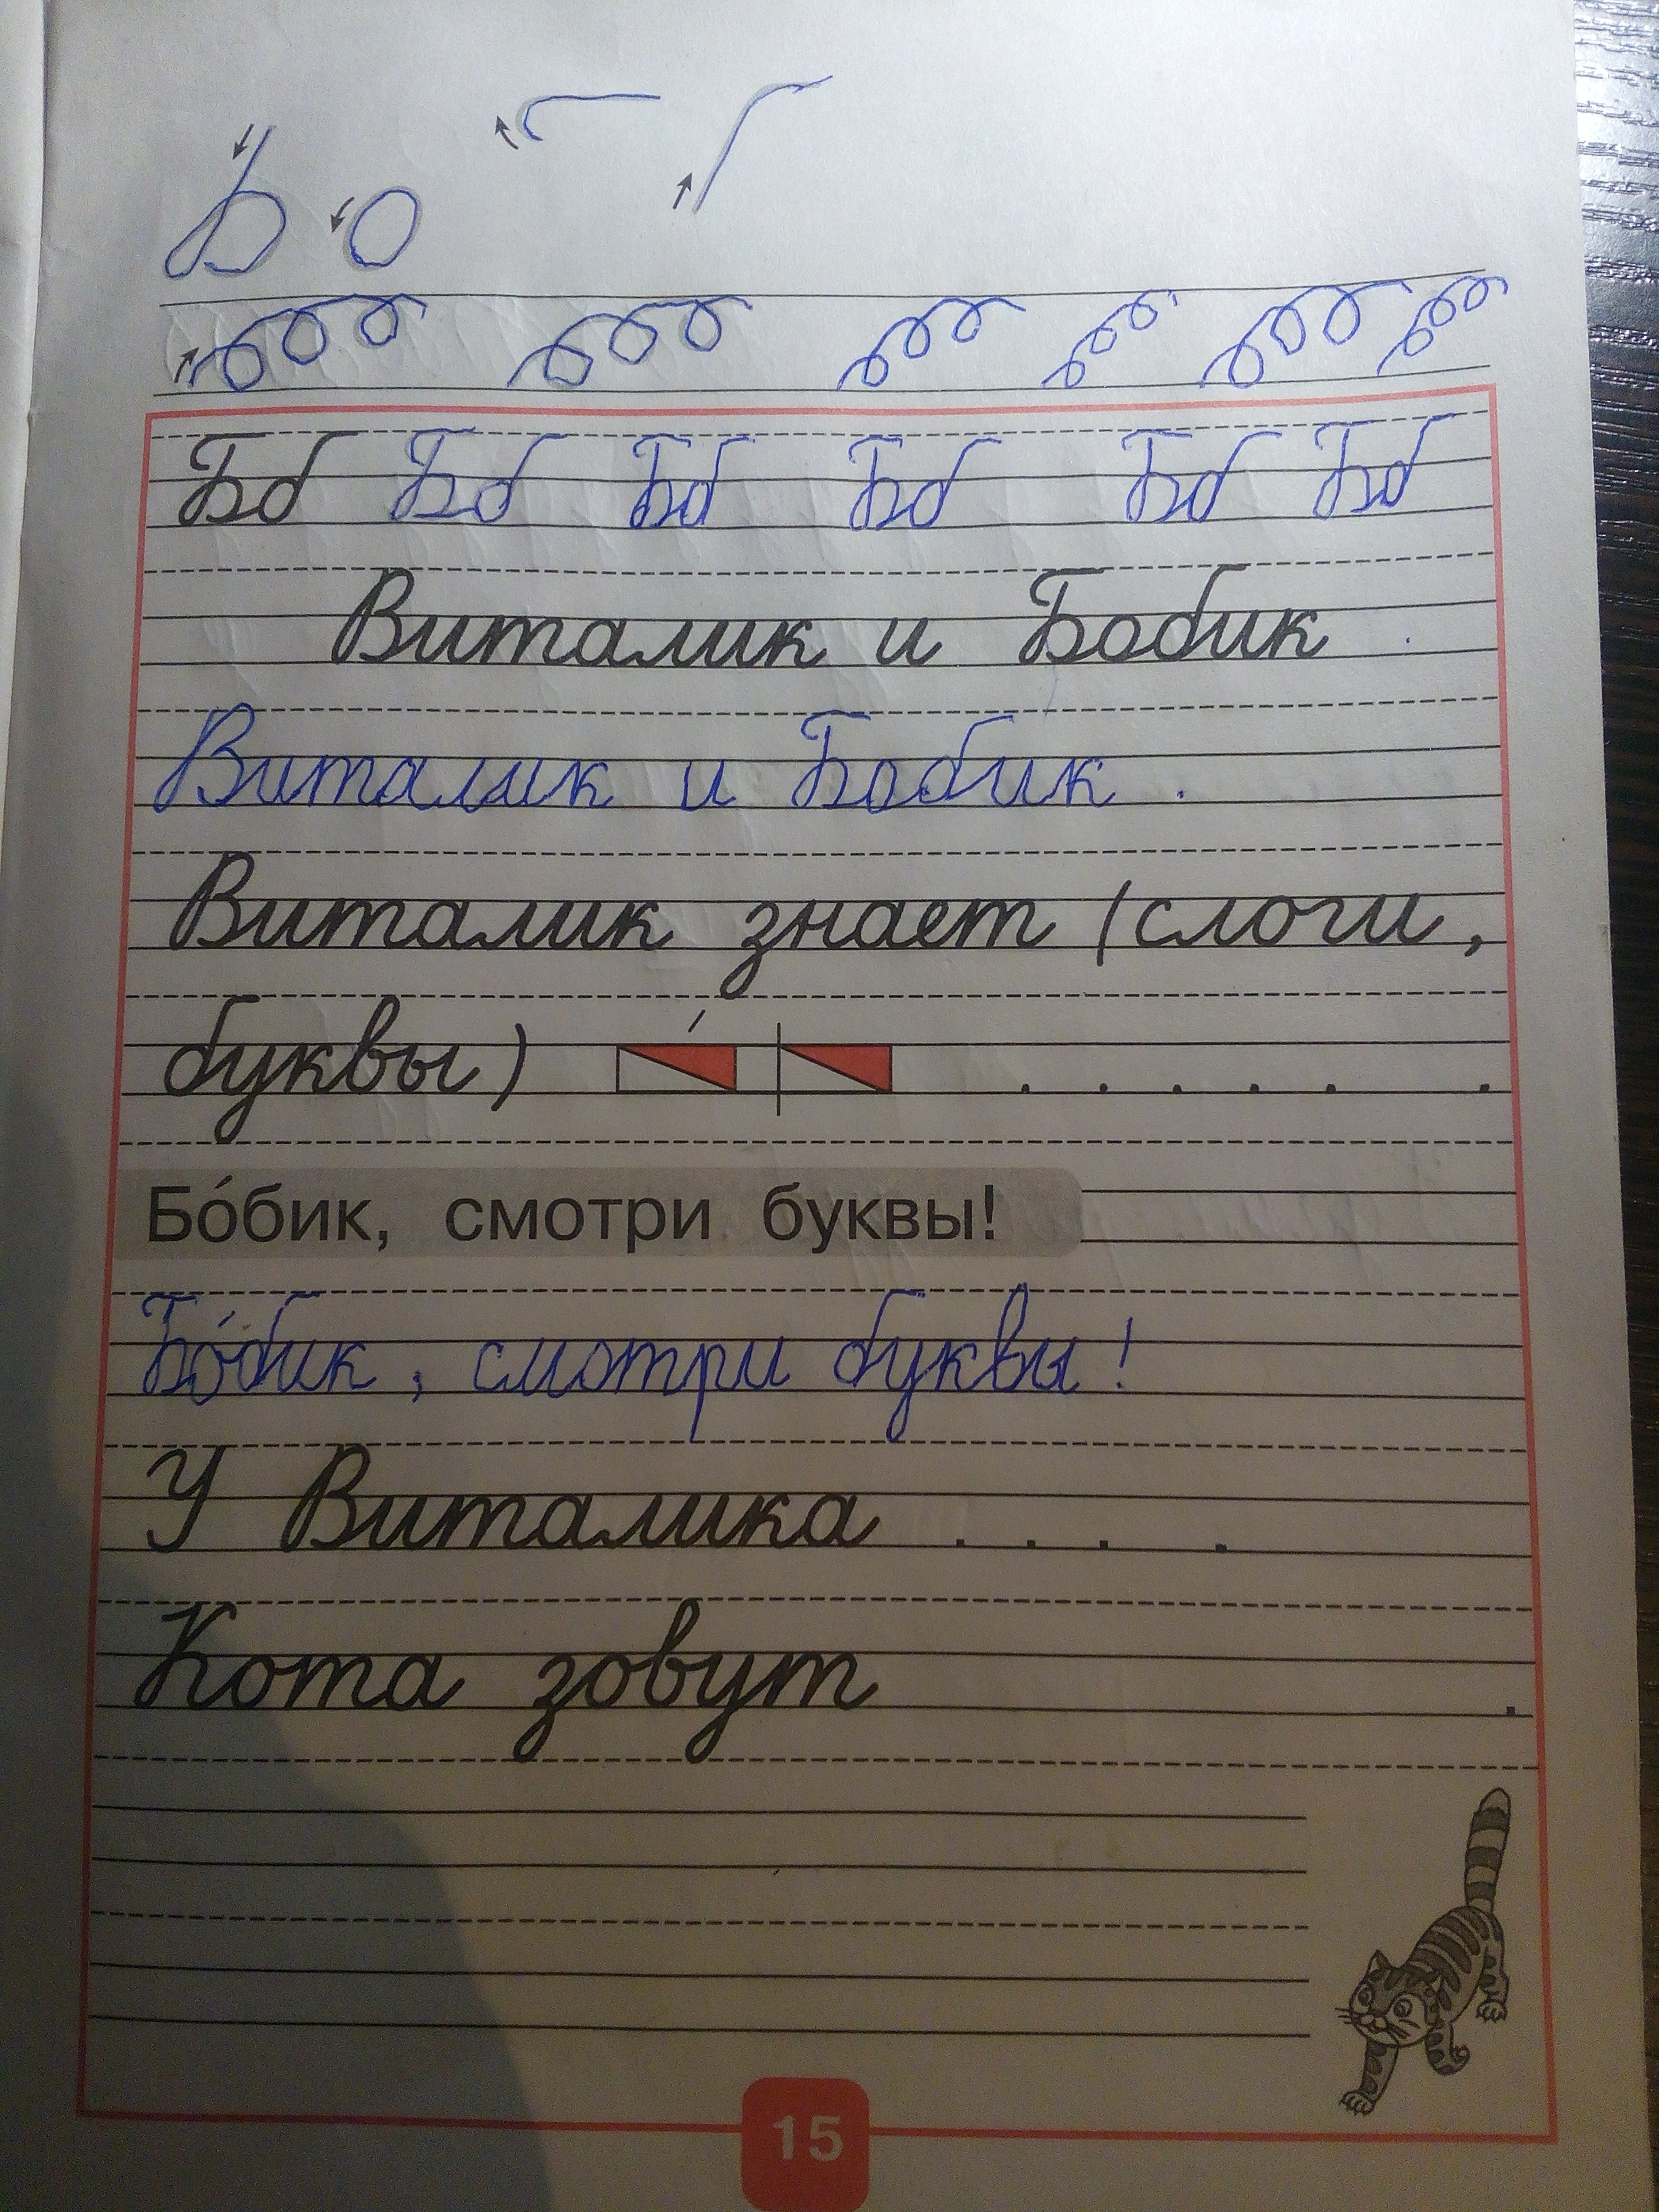 Бб Бб Бб Бб Бб Бб
Виталик и Бобик
Виталик и Бобик .
Виталик знает (слоги,
буквы) . . . . . .
Бо́бик, смотри буквы!
Бо́бик, смотри буквы!
У Виталика . . . .
Кота зовут .
15